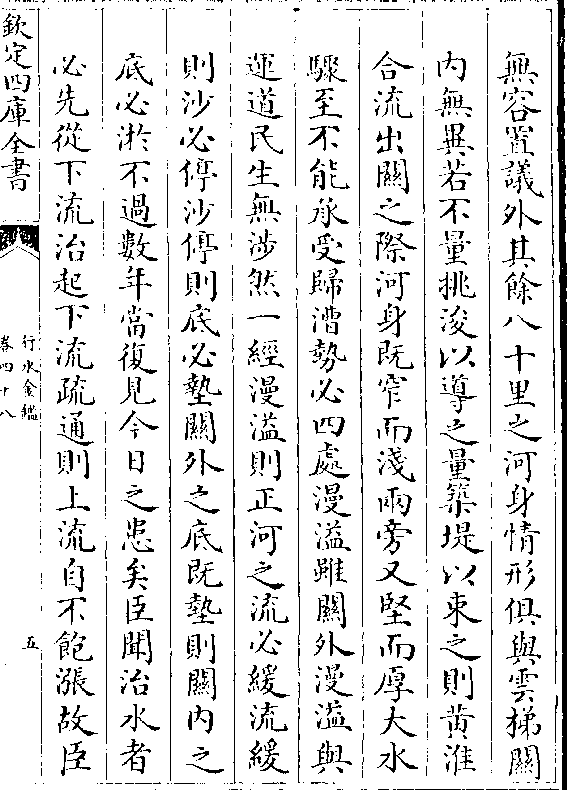 無容置議外其餘八十里之河身情形俱與雲梯關
内無異若不量挑浚以導之量築堤以束之則黄淮
合流出關之際河身既窄而淺兩旁又堅而厚大水
驟至不能承受歸漕勢必四處漫溢雖關外漫溢與
運道民生無涉然一經漫溢則正河之流必緩流緩
則沙必停沙停則底必墊關外之底既墊則關内之
底必淤不過數年當復見今日之患矣臣聞治水者
必先從下流治起下流疏通則上流自不飽漲故臣
欽定四庫全書
行水金鑑
卷四十八
五